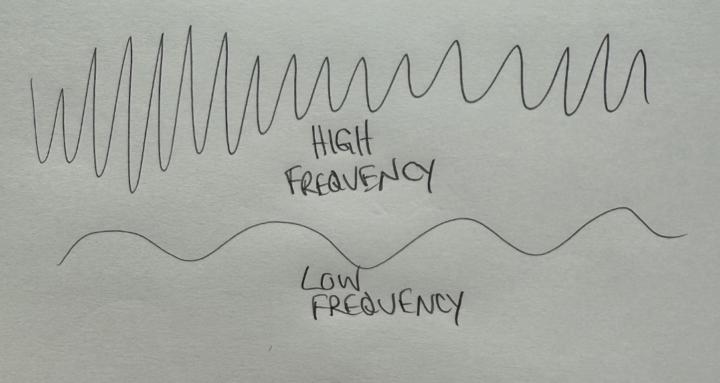 HIGH
FREQUENCY
LOW
FREQUENCY